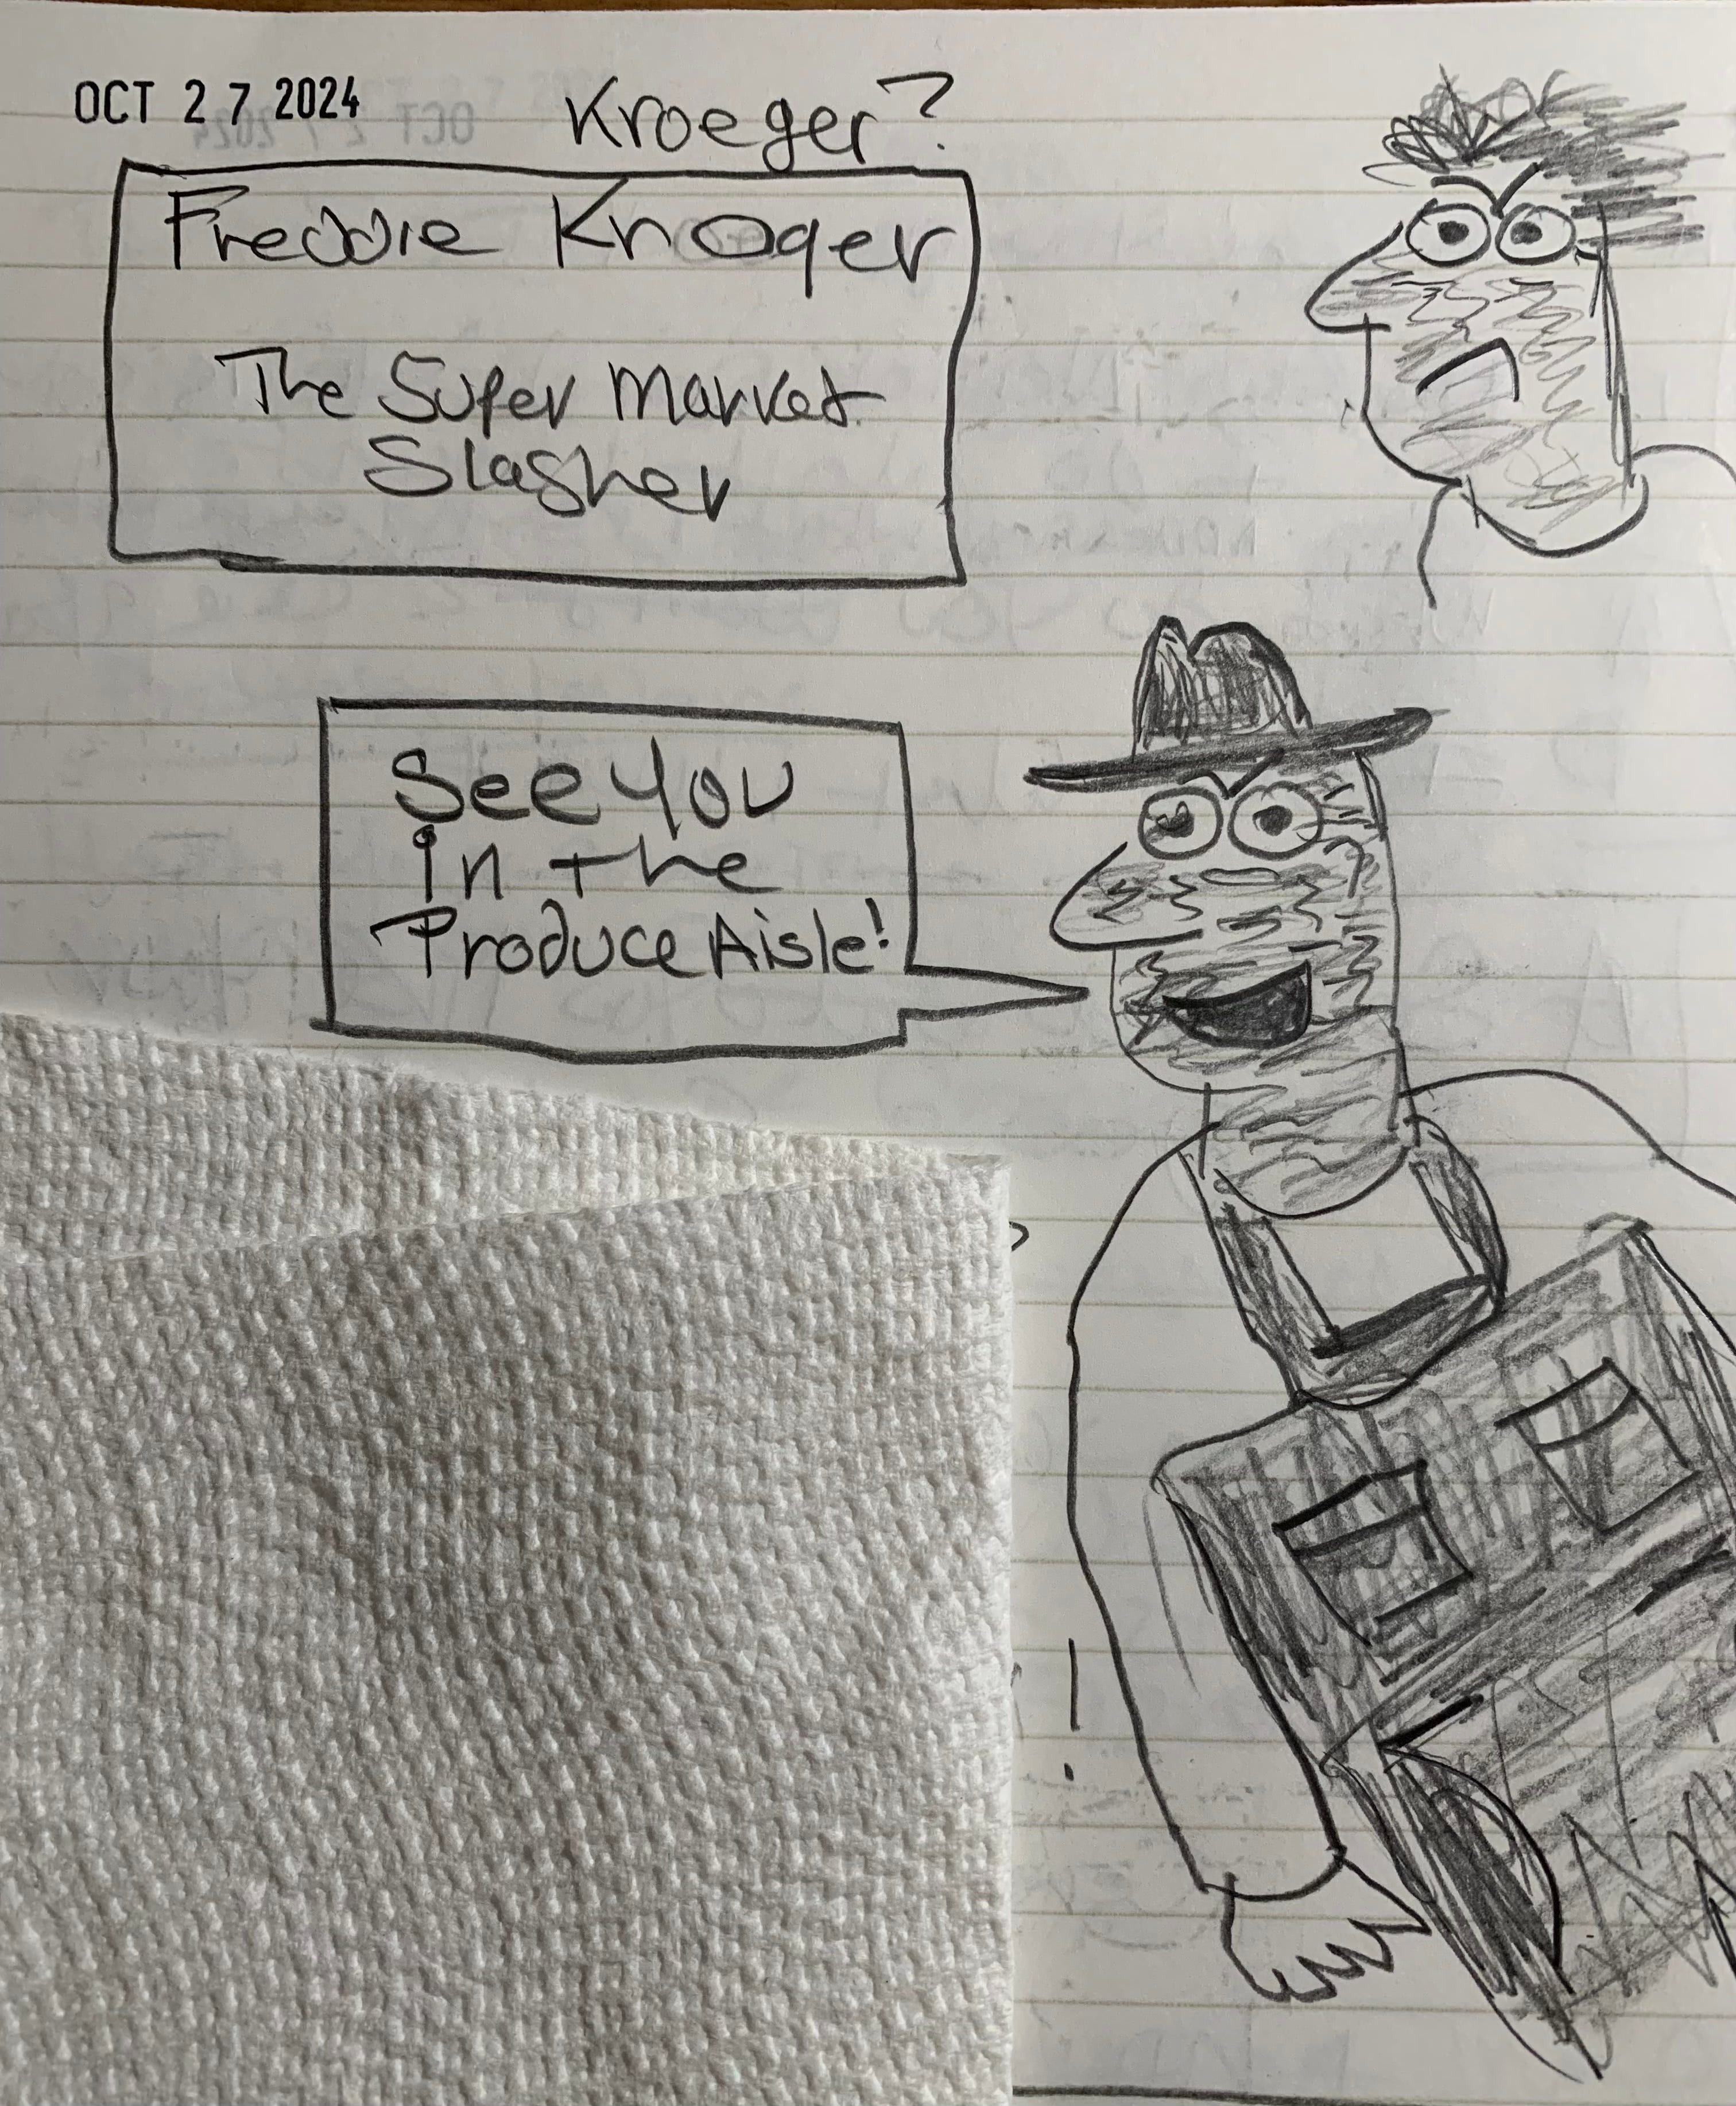 OCT 27 2024
Kroeger?
Freddie Kroger
The Super Market
Slasher
See you
in the
Produce Aisle!